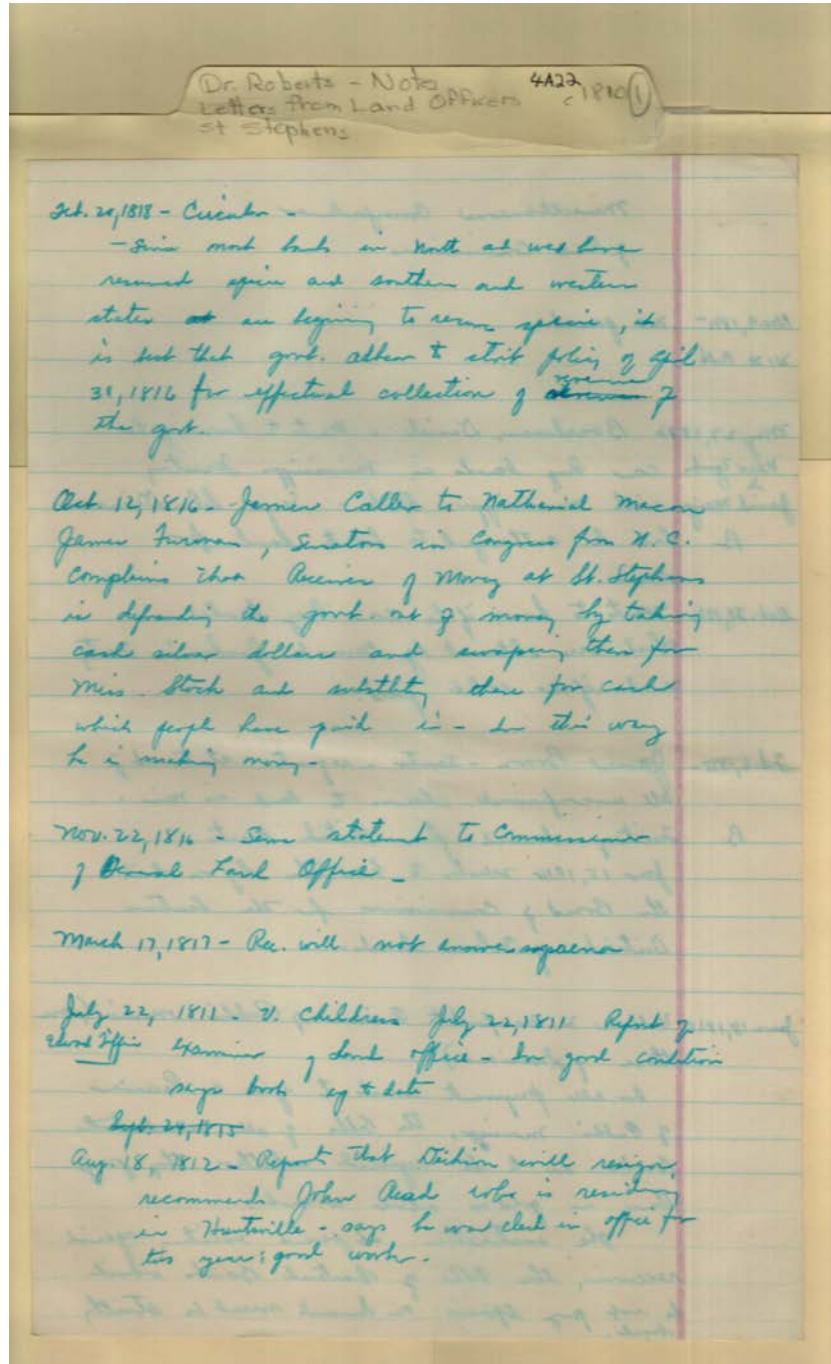 Dr. Roberts - Notes 4A22 c 1810 (1)
Letters from Land Officers
St Stephens
Feb. 20, 1818 - Circular -
- Since most banks in North and west have
resumed specie and southern and western
states are beginning to resume specie, it
is best that govt. adhere to strict policy of April
31, 1816 for effectual collection of revenue of
the govt.
Oct. 12, 1816 - James Caller to Nathanial Macon
James Turman, Senators in Congress from N.C.
Complains that Receiver of Money at St. Stephens
is defrauding the govt. out of money by taking
cash silver dollars and swaping them for
Miss. Stock and these for cash
which people have paid in - In this way
he is making money -
Nov. 22, 1816 - Same statement to Commissioner
of General Land Office -
March 17, 1817 - Rec. will not answer
July 22, 1811 - V. Childress July 22, 1811 Report of
Examiner of Land office - In good condition
says books up to date
Sept. 24, 1815
Aug. 18, 1812 - Reports that Dickson will resign,
recommends John Read who is residing
in Huntsville - says he was clerk in office for
this year; good work.